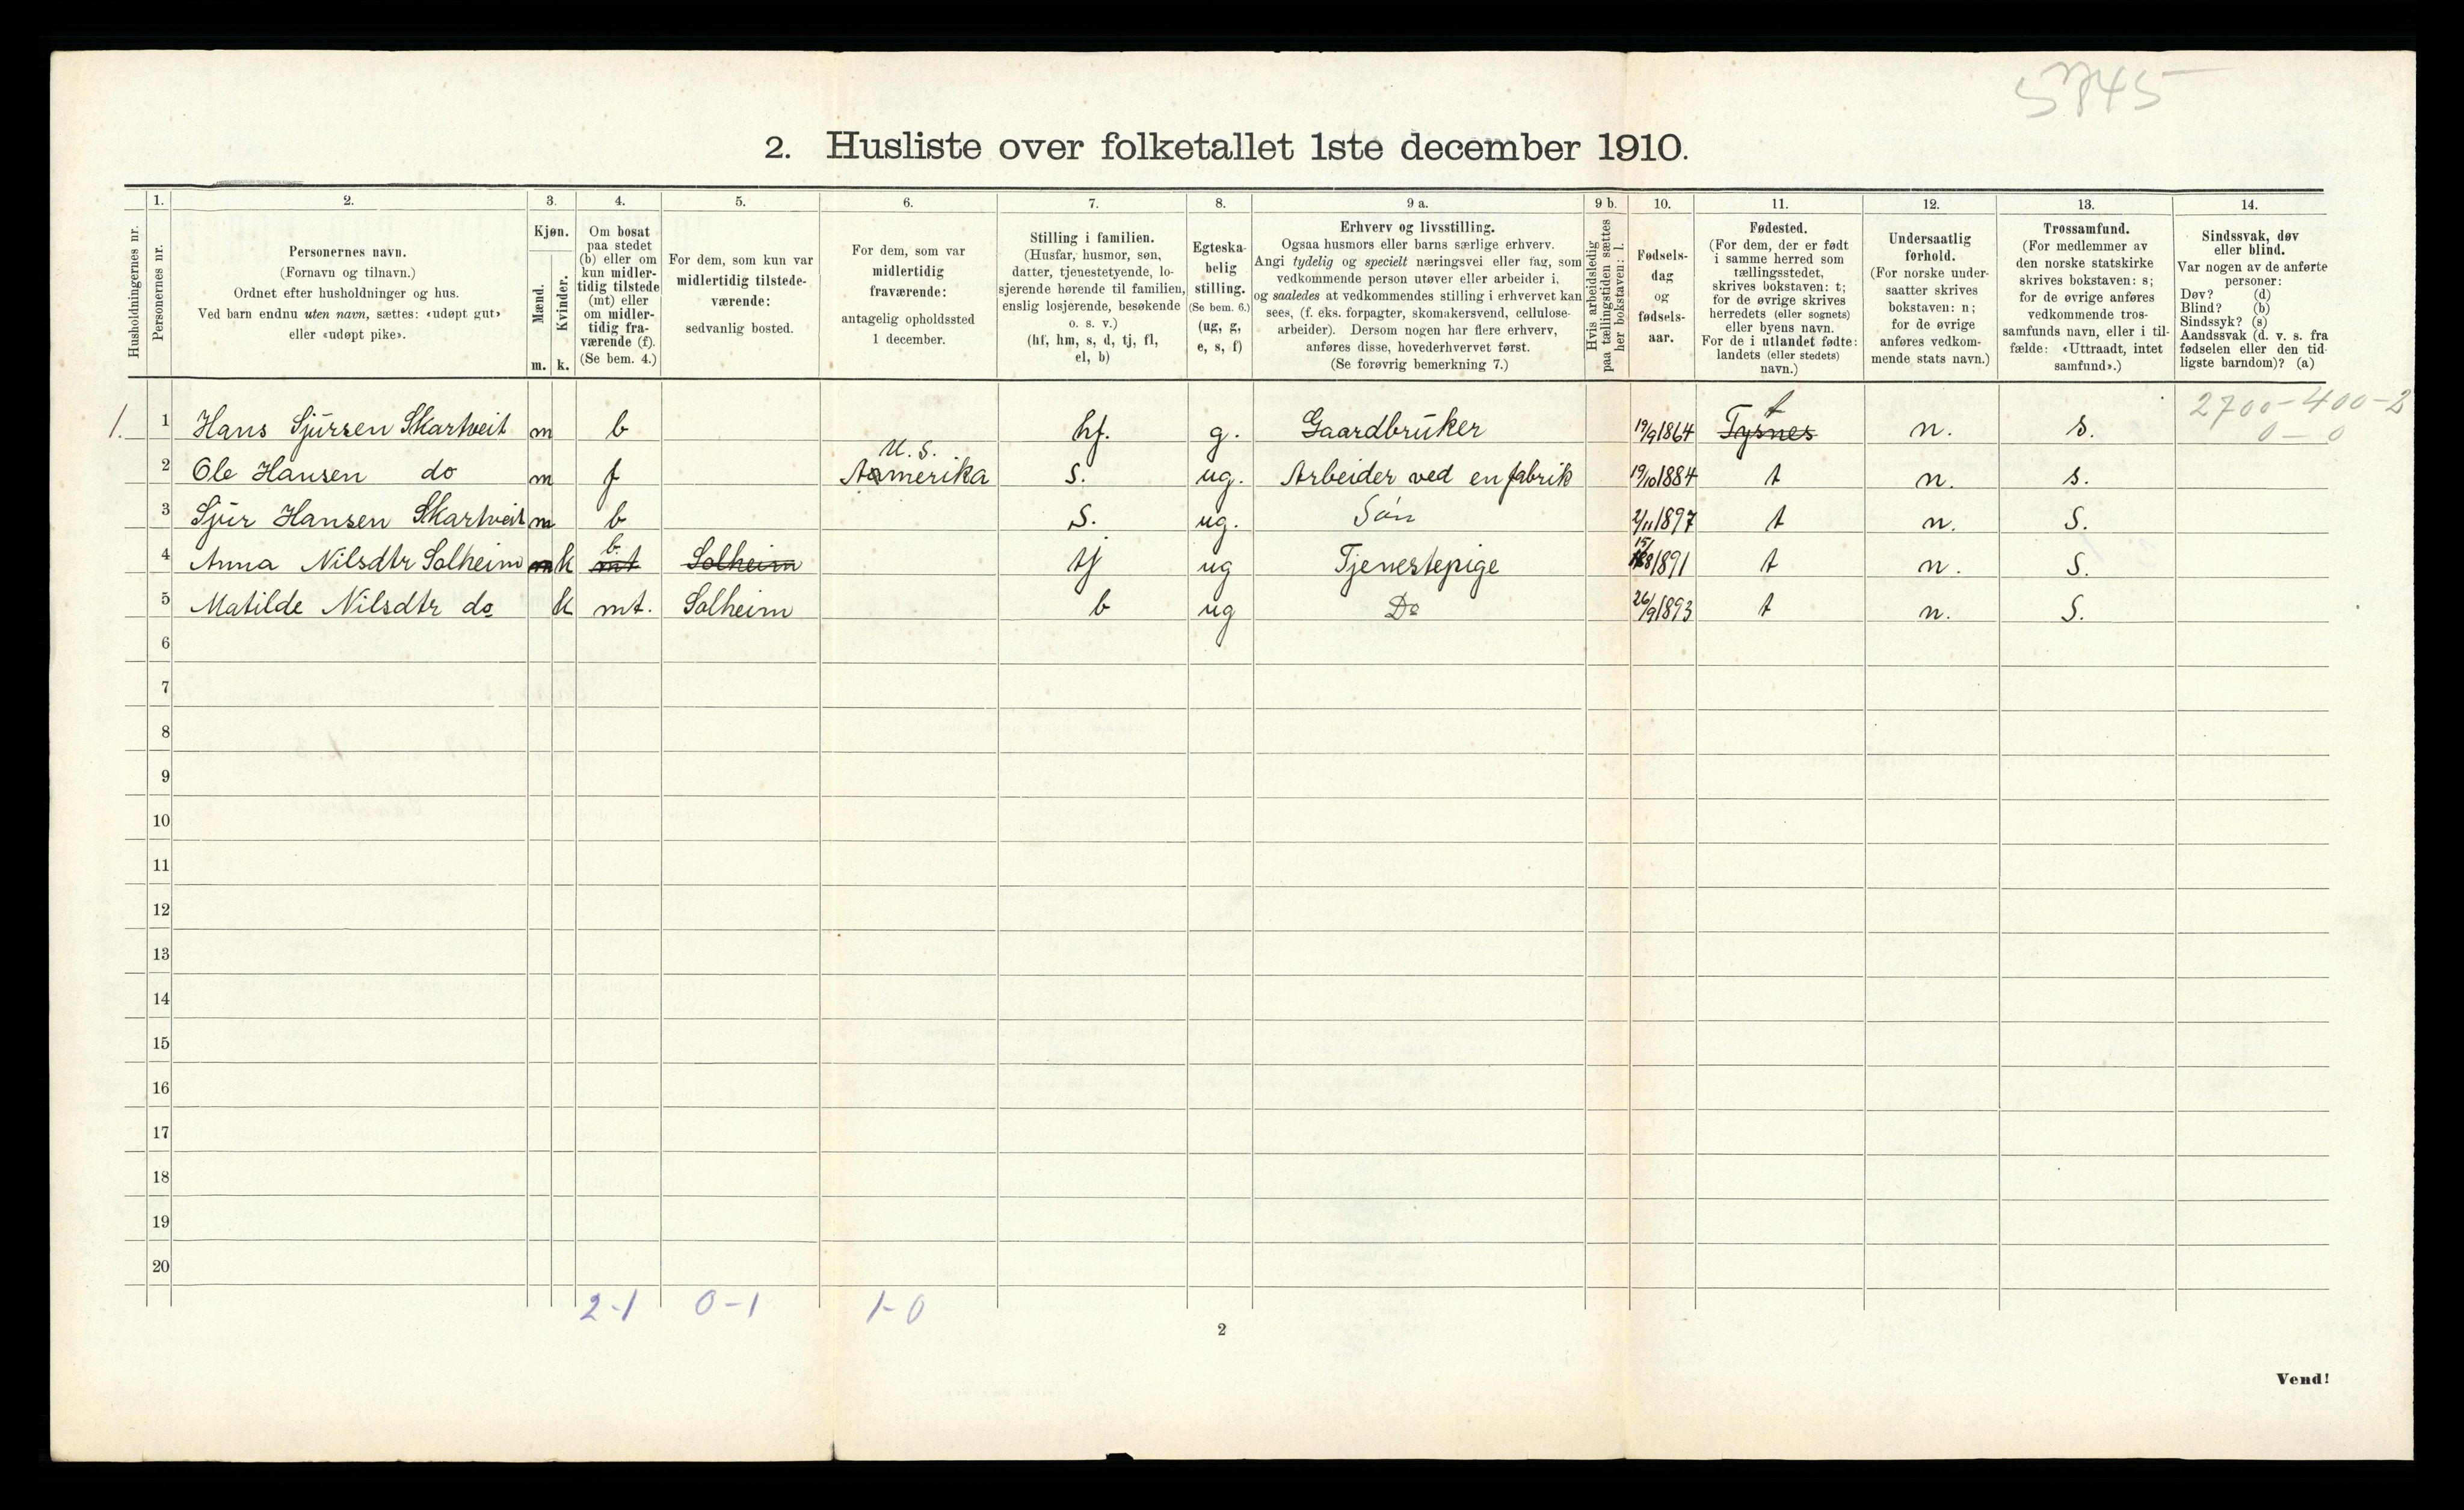 5745
2. Husliste over folketallet 1ste december 1910.
Husholdningernes nr.
1.
Personernes nr.
2.
Personernes navn.
(Fornavn og tilnavn.)
Ordnet efter husholdninger og hus.
Ved barn endnu uten navn, sættes: «udøpt gut»
eller «udøpt pike».
3.
Kjøn.
Mænd.
Kvinder.
m. k.
4.
Om bosat
paa stedet
(b) eller om
kun midler-
tidig tilstede
(mt) eller
om midler-
tidig fra-
værende (f).
(Se bem. 4.)
5.
For dem, som kun var
midlertidig tilstede-
værende:
sedvanlig bosted.
6.
For dem, som var
midlertidig
fraværende:
antagelig opholdssted
1 december.
7.
Stilling i familien.
(Husfar, husmor, søn,
datter, tjenestetyende, lo-
sjerende hørende til familien,
enslig losjerende, besøkende
o. s. v.)
(hf, hm, s, d, tj, fl,
el, b)
8.
Egteska-
belig
stilling.
(Se bem. 6.)
(ug, g,
e, s, f)
9 a.
Erhverv og livsstilling.
Ogsaa husmors eller barns særlige erhverv.
Angi tydelig og specielt næringsvei eller fag, som
vedkommende person utøver eller arbeider i,
og saaledes at vedkommendes stilling i erhvervet kan
sees, (f. eks. forpagter, skomakersvend, cellulose-
arbeider). Dersom nogen har flere erhverv,
anføres disse, hovederhvervet først.
(Se forøvrig bemerkning 7.)
9 b.
Hvis arbeidsledig
paa tællingstiden sættes
her bokstaven: l.
10.
Fødsels-
dag
og
fødsels-
aar.
11.
Fødested.
(For dem, der er født
i samme herred som
tællingsstedet,
skrives bokstaven: t;
for de øvrige skrives
herredets (eller sognets)
eller byens navn.
For de i utlandet fødte:
landets (eller stedets)
navn.)
12.
Undersaatlig
forhold.
(For norske under-
saatter skrives
bokstaven: n;
for de øvrige
anføres vedkom-
mende stats navn.)
13.
Trossamfund.
(For medlemmer av
den norske statskirke
skrives bokstaven: s;
for de øvrige anføres
vedkommende tros-
samfunds navn, eller i til-
fælde: «Uttraadt, intet
samfund».)
14.
Sindssvak, døv
eller blind.
Var nogen av de anførte
personer:
Døv? (d)
Blind? (b)
Sindssyk? (s)
Aandssvak (d. v. s. fra
fødselen eller den tid-
ligste barndom)? (a)
2700-400-2
0-0
1. 1 Hans Sjursen Skartveit m b hf. g. Gaardbruker 19/9 1864 Tysnes t n. s.
2 Ole Hansen do m f U. S. Amerika s. ug. Arbeider ved en fabrik 19/10 1884 t n. s.
3 Sjur Hansen Skartveit m b S. ug. Søn 2/11 1897 t n. S.
4 Anna Nilsdtr Solheim m k mt b. Solheim tj ug Tjenestepige 15/8 1891 t n. S.
5 Matilde Nilsdtr do k mt. Solheim b ug Do 26/9 1893 t n. S.
6
7
8
9
10
11
12
13
14
15
16
17
18
19
20
2-1 0-1 1-0
2
Vend!